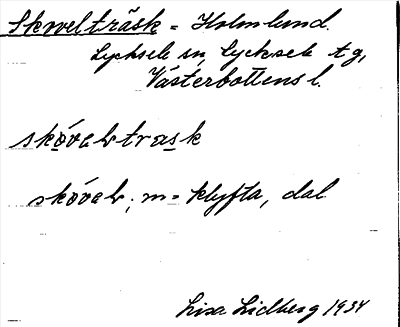 Skovelträsk = Holmlund.
Lycksele sn, Lycksele tg,
Västerbottens l.
skóvəlvtrask
skóvəlv, m = klyfta, dal
Lisa Lidberg 1934